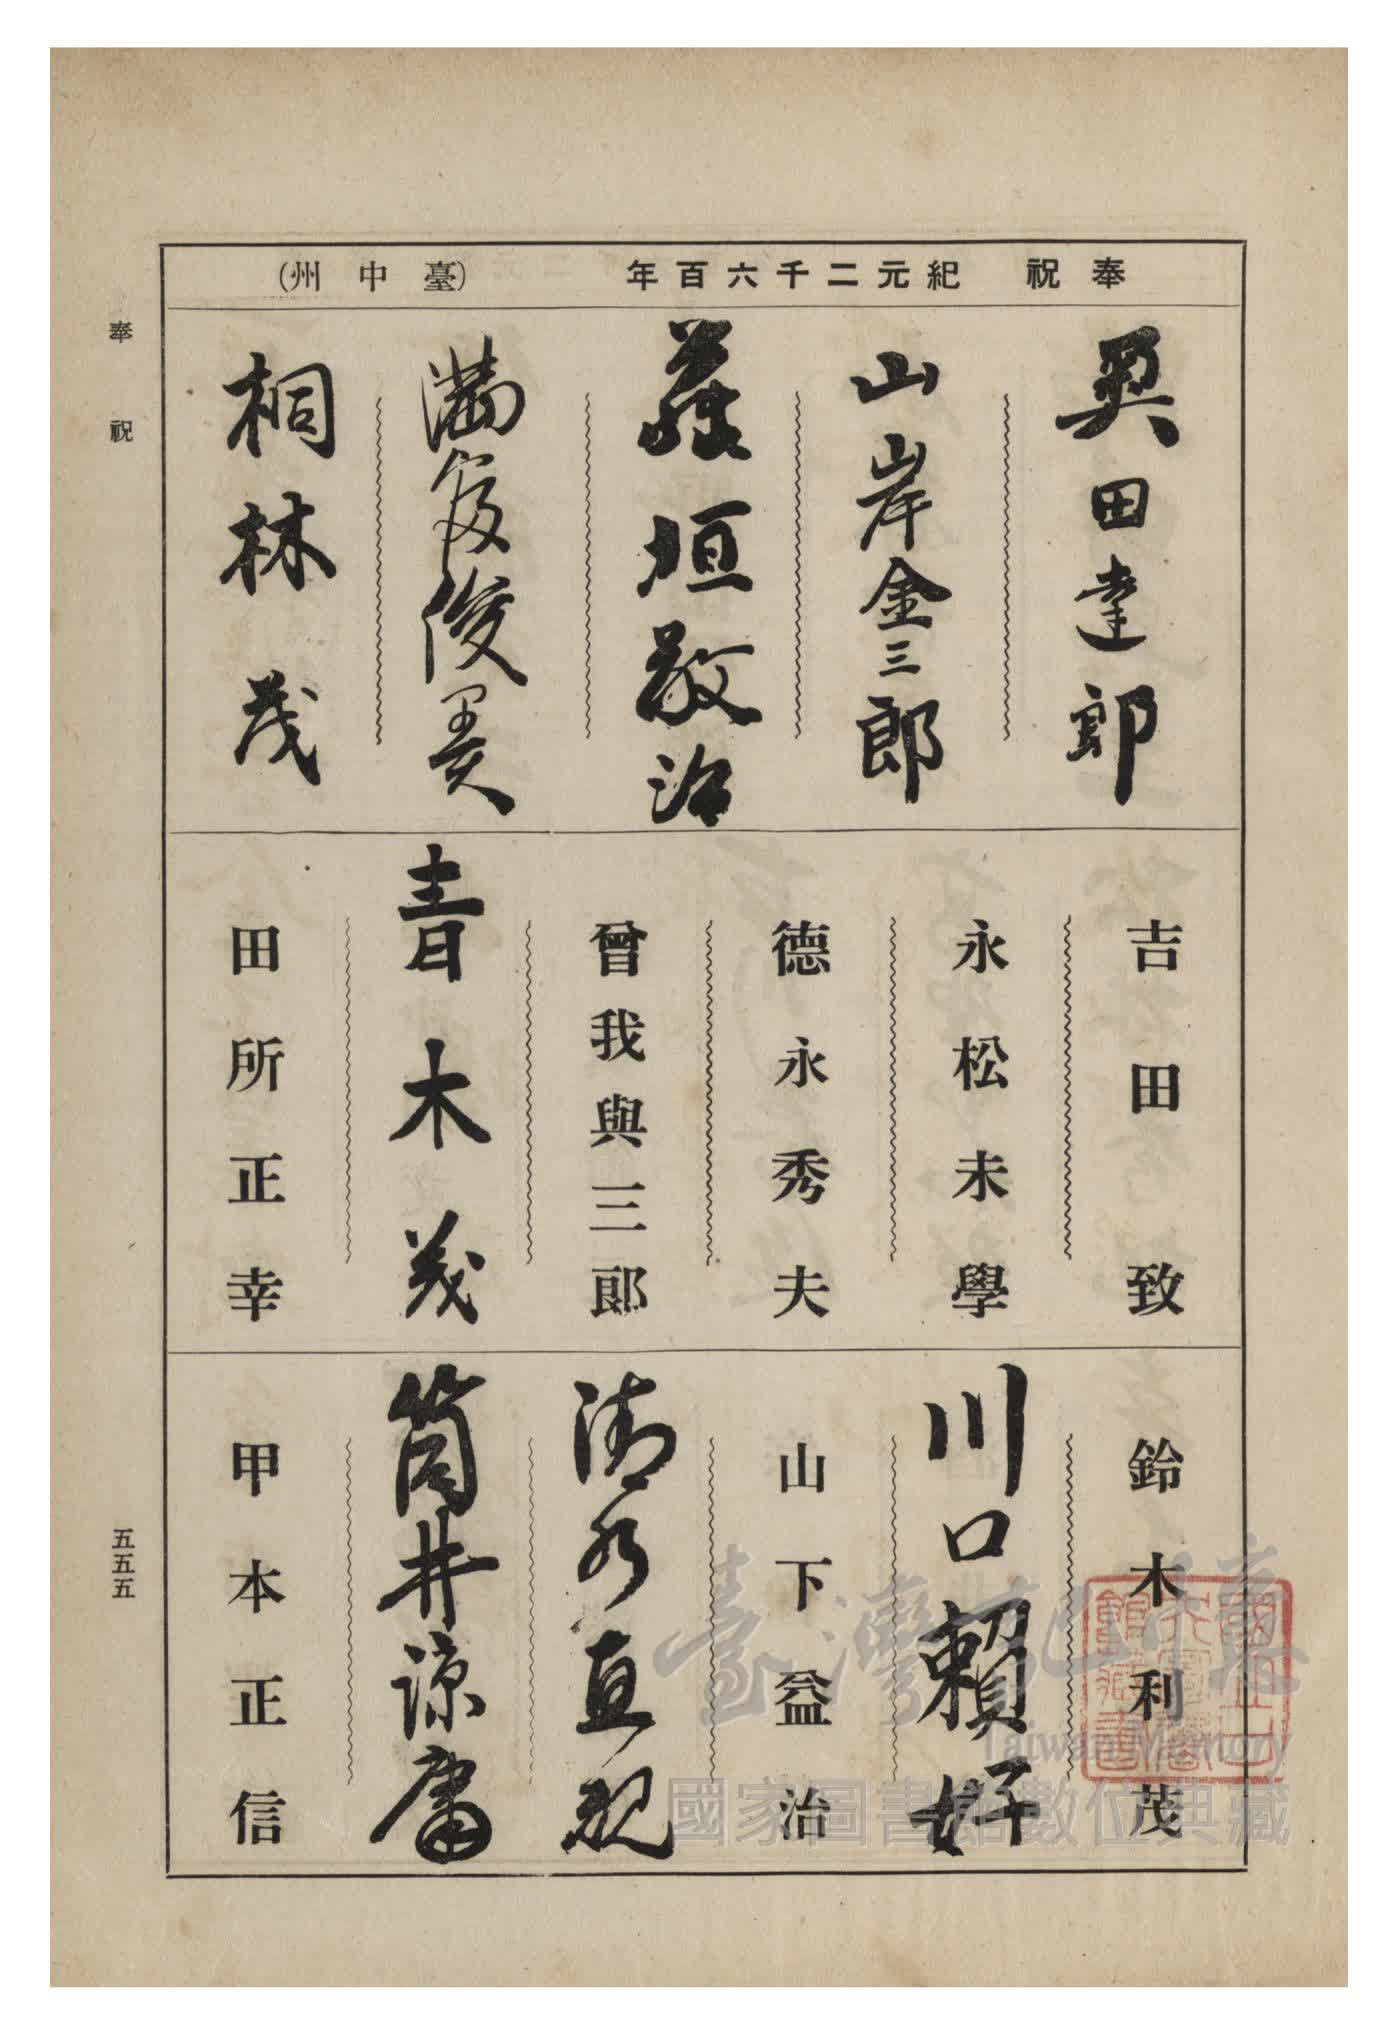 奉祝 紀元二千六百年 (臺中州)
奧田達郎
山岸金三郎
藤垣敬治
桐林茂
吉田致
永松未學
德永秀夫
曾我與三郞
青木茂
田所正幸
鈴木利茂
川口賴好
山下益治
清水直親
筒井諒庸
甲本正信
奉祝
五五五
臺灣記憶
Taiwan Memory
國家圖書館數位典藏